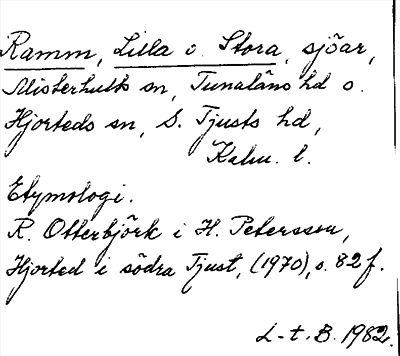 Ramm, Lilla o. Stora, sjöar,
Misterhults sn, Tunaläns hd o.
Hjorteds sn, S. Tjusts hd,
Kalm. l.
Etymologi.
R. Otterbjörk i H. Petersson,
Hjorted i södra Tjust, (1970), s. 82 f.
L-t. B. 1982.